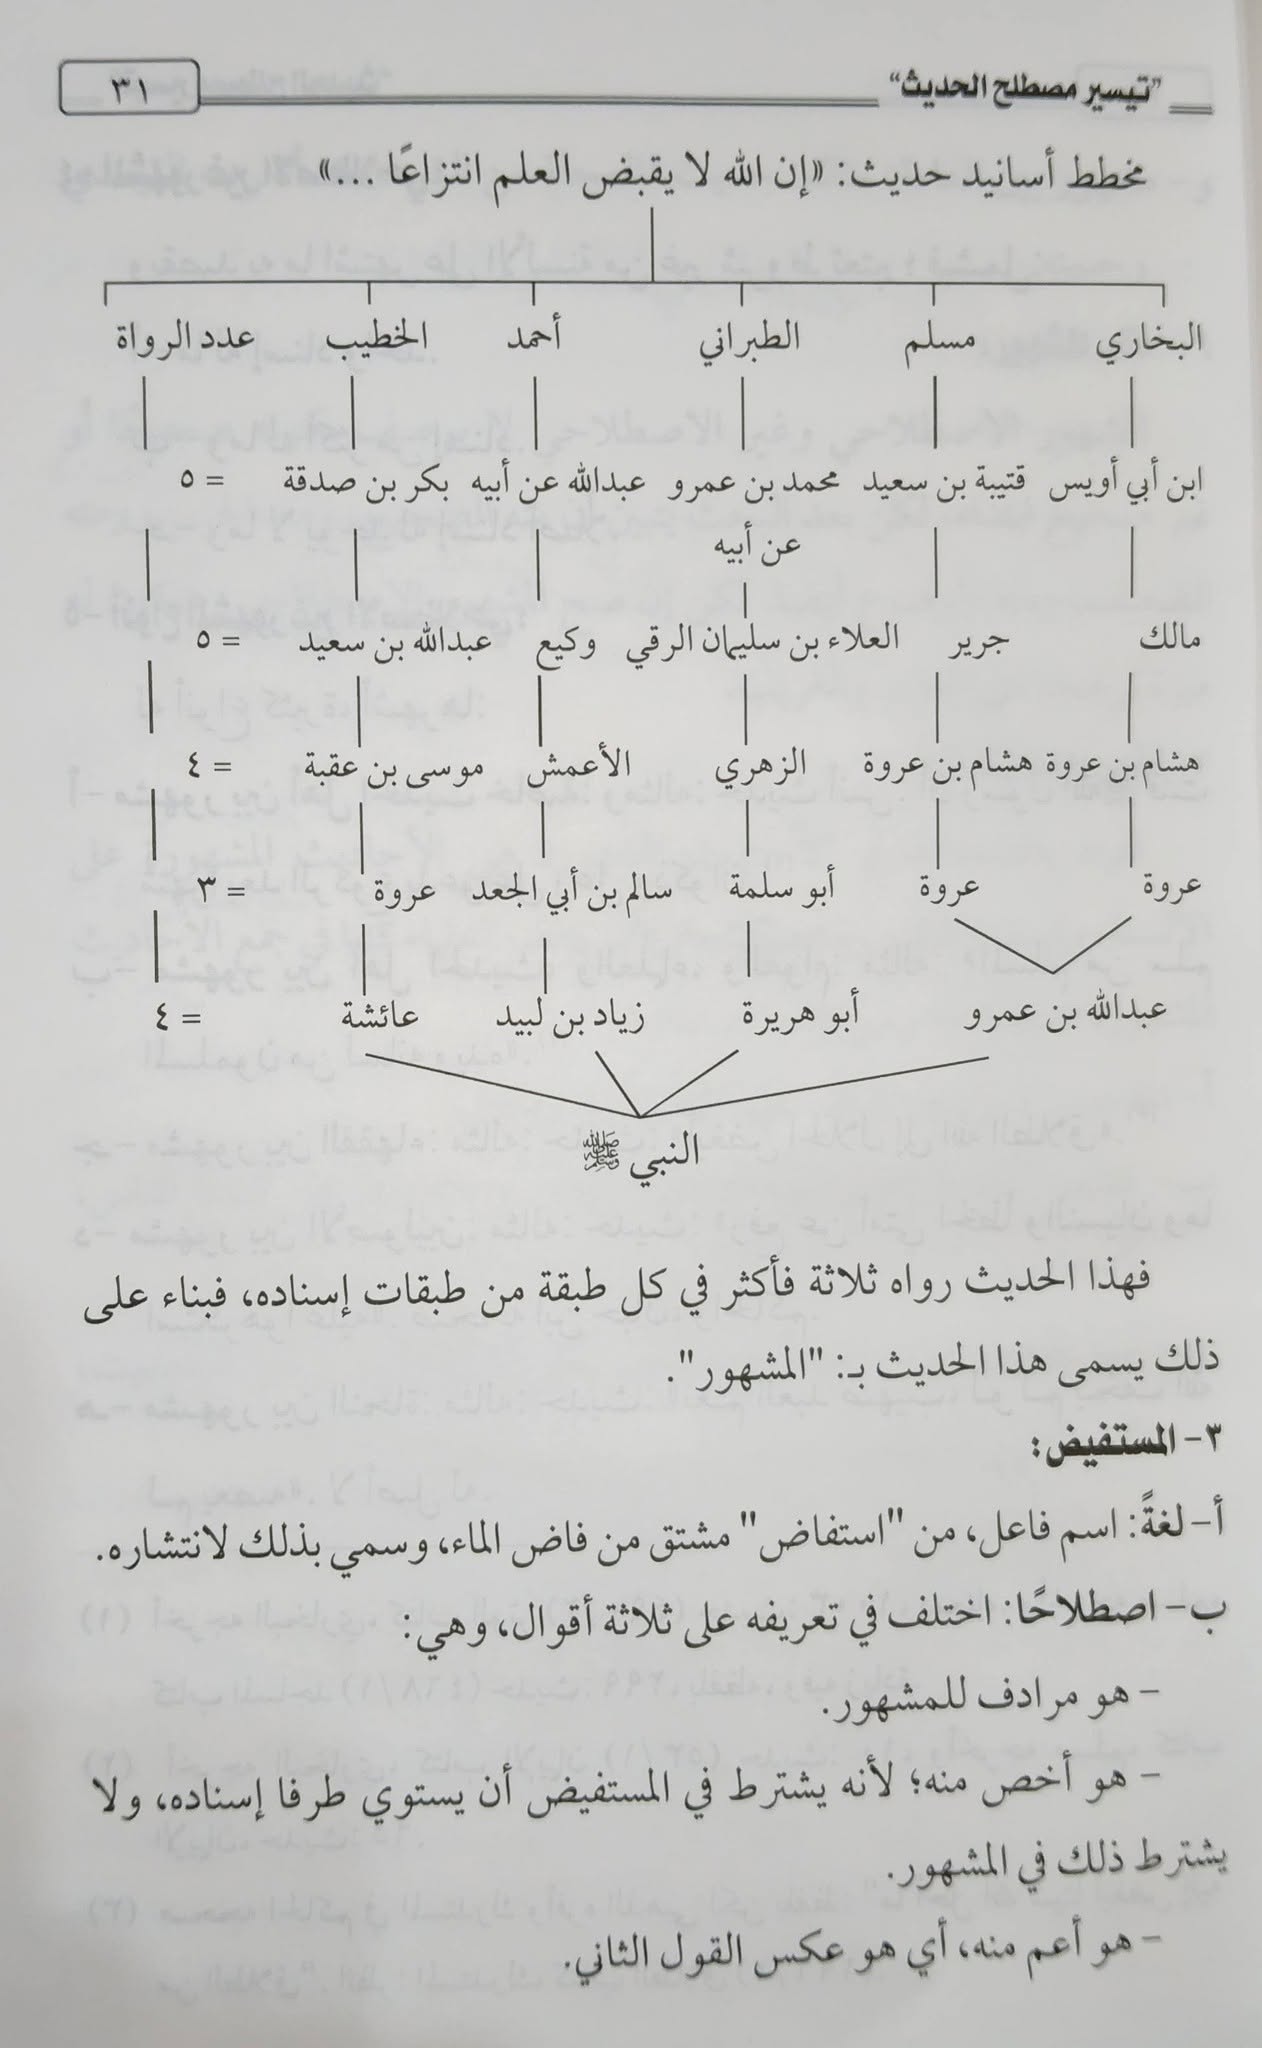 "تيسير مصطلح الحديث" ٣١
مخطط أسانيد حديث: «إن الله لا يقبض العلم انتزاعًا ...»
البخاري مسلم الطبراني أحمد الخطيب عدد الرواة
ابن أبي أويس قتيبة بن سعيد محمد بن عمرو عبدالله عن أبيه بكر بن صدقة = ٥
عن أبيه
مالك جرير العلاء بن سليمان الرقي وكيع عبدالله بن سعيد = ٥
هشام بن عروة هشام بن عروة الزهري الأعمش موسى بن عقبة = ٤
عروة عروة أبو سلمة سالم بن أبي الجعد عروة = ٣
عبدالله بن عمرو أبو هريرة زياد بن لبيد عائشة = ٤
النبي ﷺ
فهذا الحديث رواه ثلاثة فأكثر في كل طبقة من طبقات إسناده، فبناء على
ذلك يسمى هذا الحديث بـ: "المشهور".
٣- المستفيض:
أ- لغةً: اسم فاعل، من "استفاض" مشتق من فاض الماء، وسمي بذلك لانتشاره.
ب- اصطلاحًا: اختلف في تعريفه على ثلاثة أقوال، وهي:
- هو مرادف للمشهور.
- هو أخص منه؛ لأنه يشترط في المستفيض أن يستوي طرفا إسناده، ولا
يشترط ذلك في المشهور.
- هو أعم منه، أي هو عكس القول الثاني.